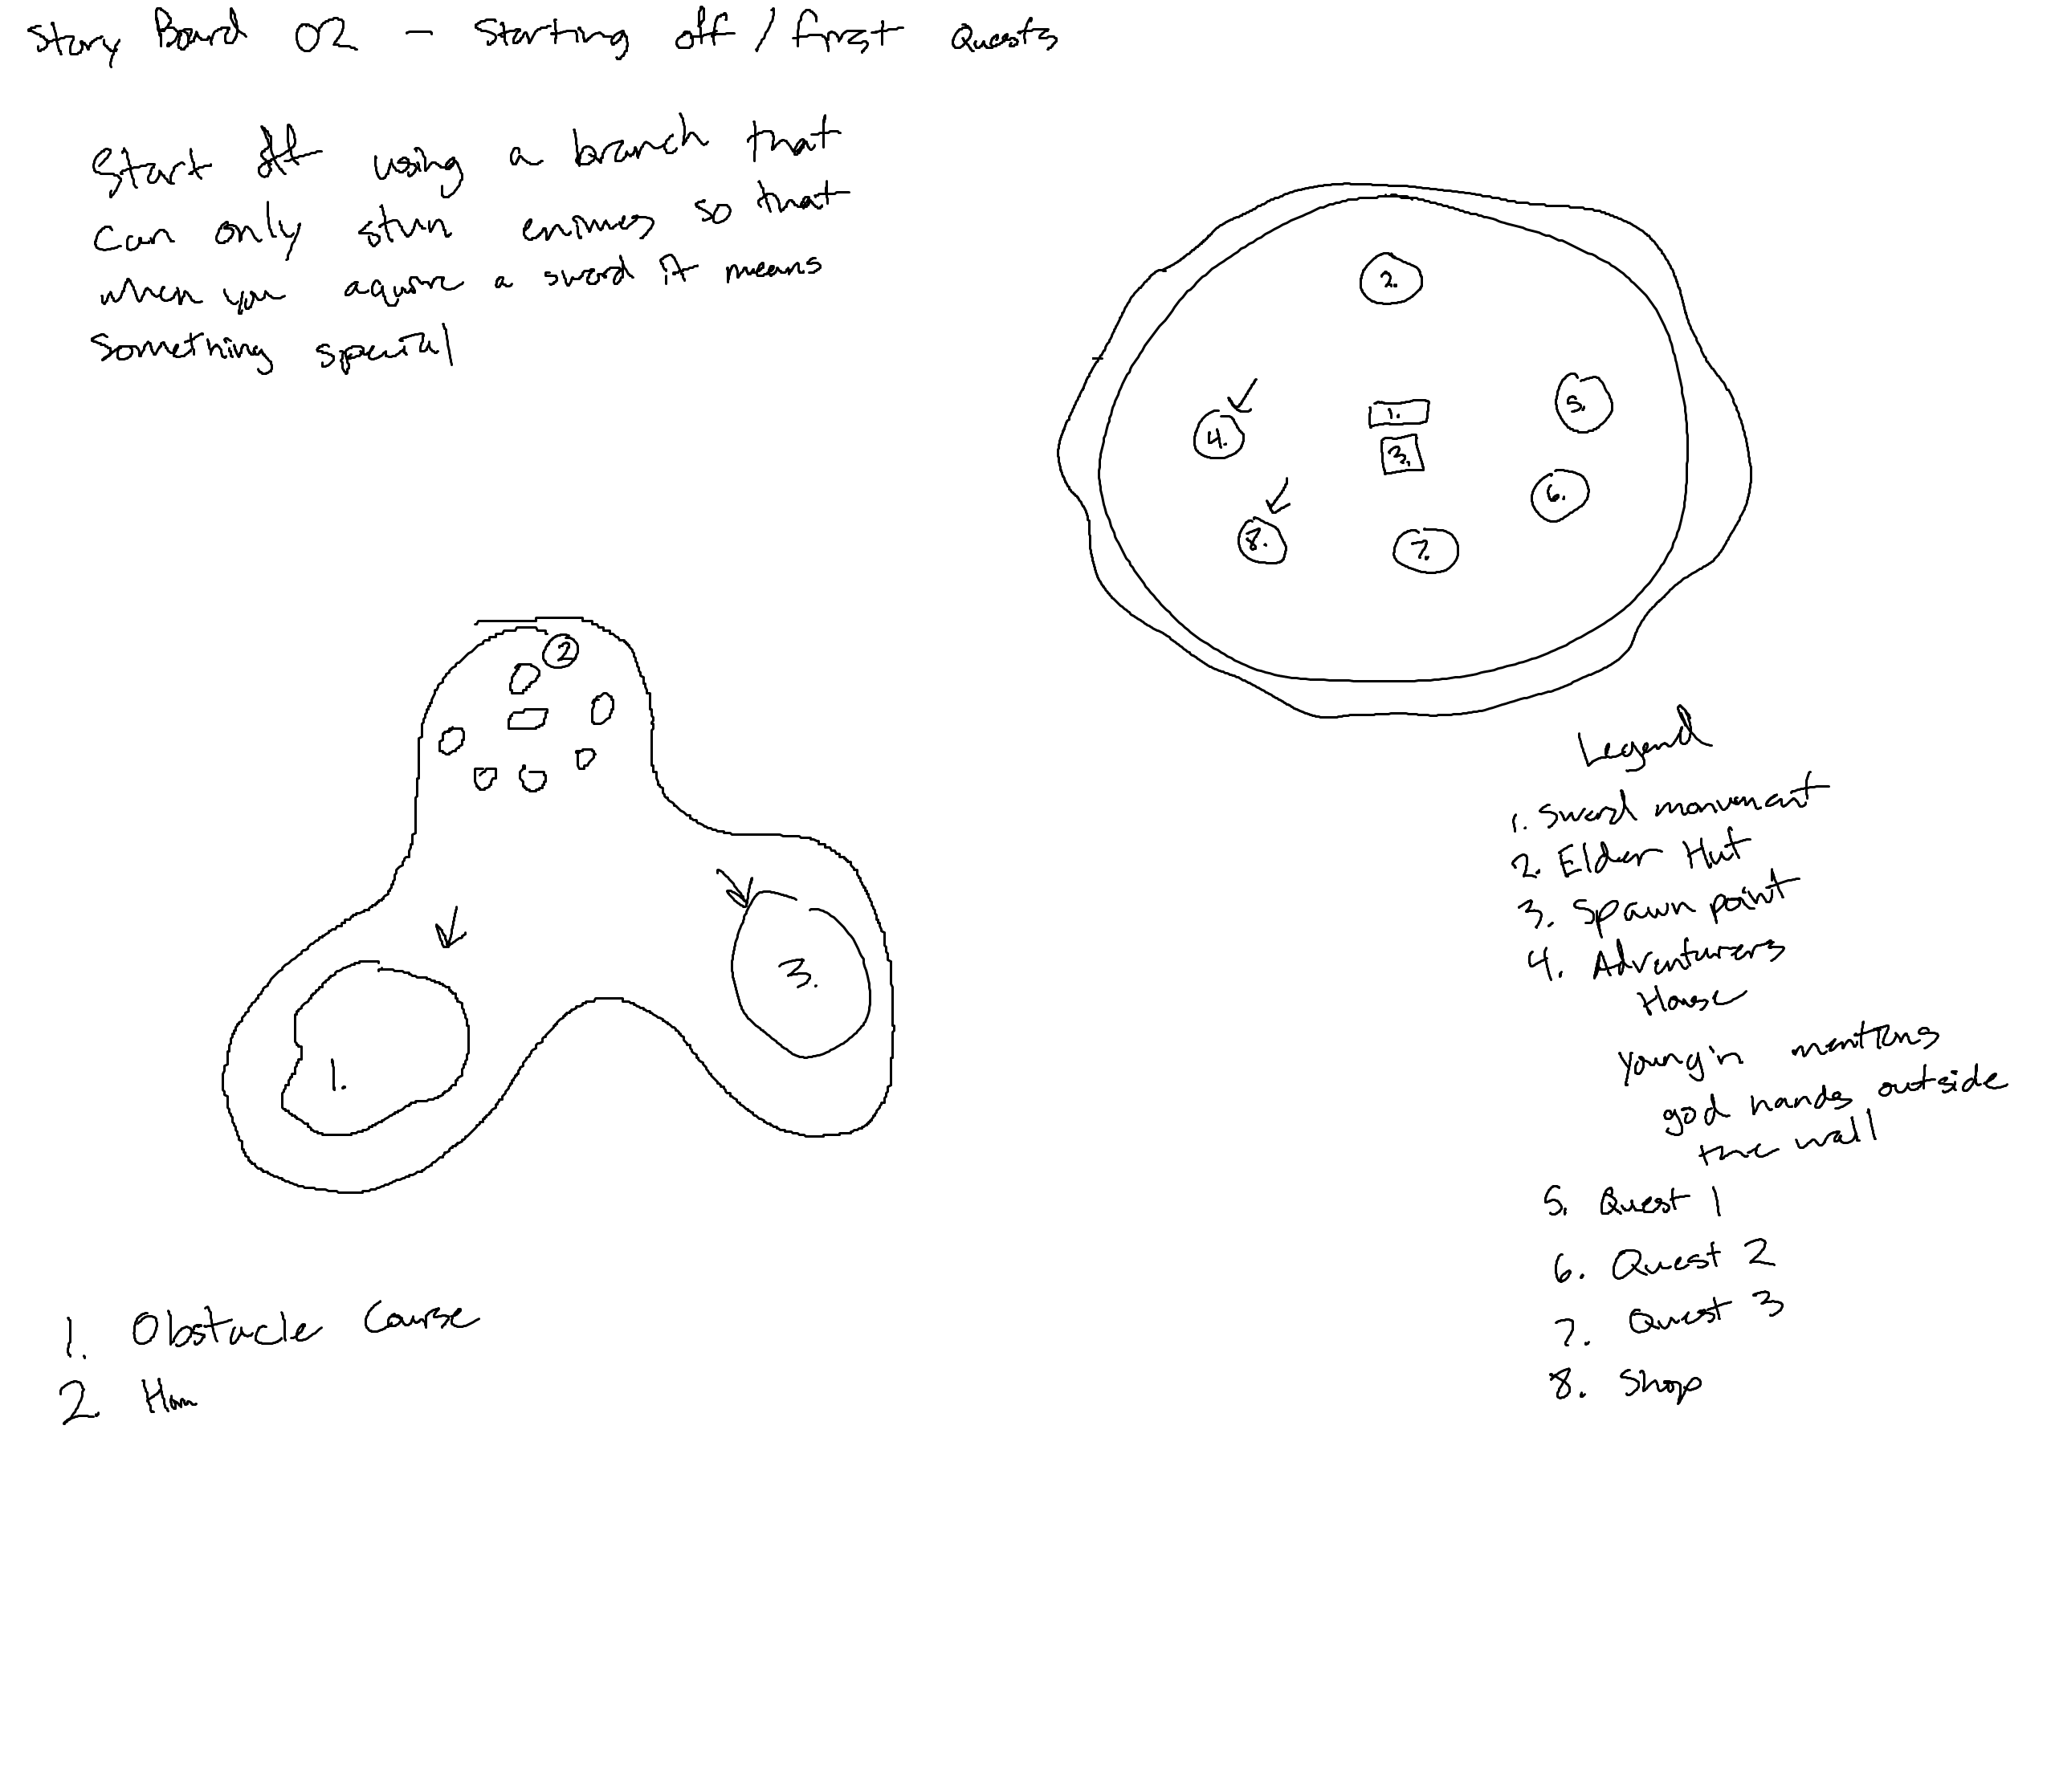 Story Board 02 - Starting off / first Quests
Start off using a branch that
can only stun enimes so that
when you aquire a sword it means
something special
2.
1.
3.
4.
5.
6.
7.
8.
2
1.
3.
Legend
1. Sword monument
2. Elder Hut
3. Spawn point
4. Adventurers
House
Young'n mentions
god hands outside
the wall
5. Quest 1
6. Quest 2
7. Quest 3
8. Shop
1. Obstacle Course
2